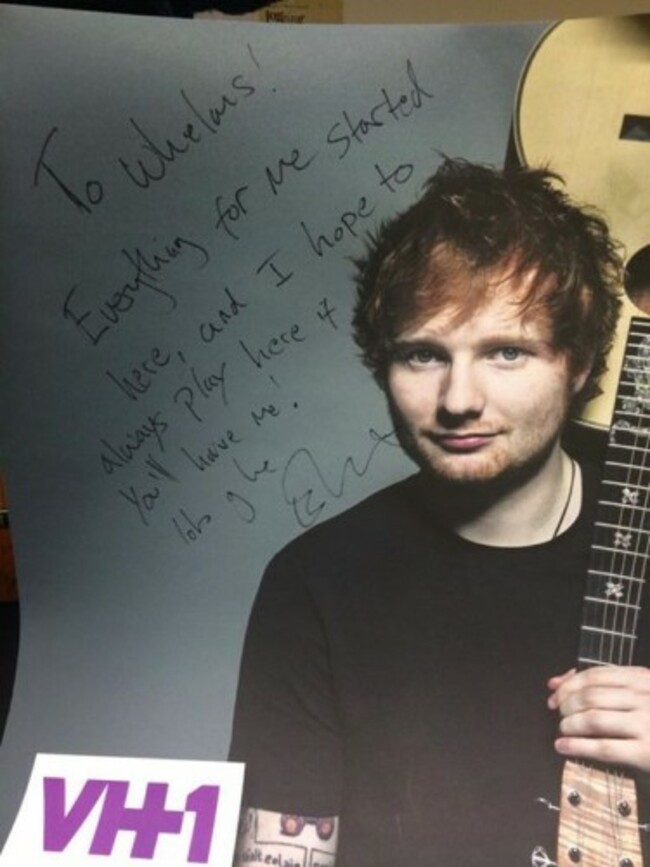 To Whelans!
Everything for me started
here, and I hope to
always play here if
You'll have me!
lots of love
VH1